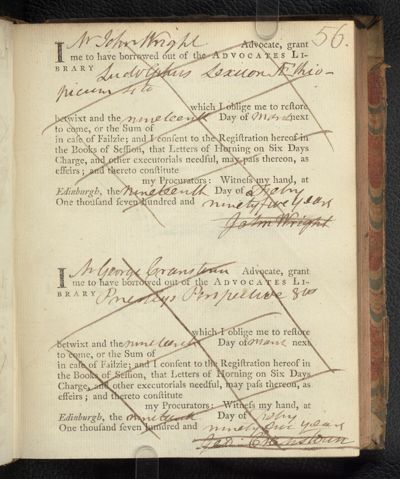 56.
I Mr John Wright Advocate, grant
me to have borrowed out of the ADVOCATES LI-
BRARY Ludolphus Lexicon Æthio-
picum 4to
which I oblige me to reſtore
betwixt and the nineteenth Day of March next
to come, or the Sum of
in caſe of Failzie; and I conſent to the Regiſtration hereof in
the Books of Seſſion, that Letters of Horning on Six Days
Charge, and other executorials needful, may paſs thereon, as
effeirs; and thereto conſtitute
my Procurators: Witneſs my hand, at
Edinburgh, the nineteenth Day of Febry
One thouſand ſeven hundred and ninety five years
John Wright
I Mr George Cranstoun Advocate, grant
me to have borrowed out of the ADVOCATES LI-
BRARY Priestleys Perspective 8vo
which I oblige me to reſtore
betwixt and the nineteenth Day of March next
to come, or the Sum of
in caſe of Failzie; and I conſent to the Regiſtration hereof in
the Books of Seſſion, that Letters of Horning on Six Days
Charge, and other executorials needful, may paſs thereon, as
effeirs; and thereto conſtitute
my Procurators: Witneſs my hand, at
Edinburgh, the nineteenth Day of Febry
One thouſand ſeven hundred and ninety five years
Geo. Cranstoun